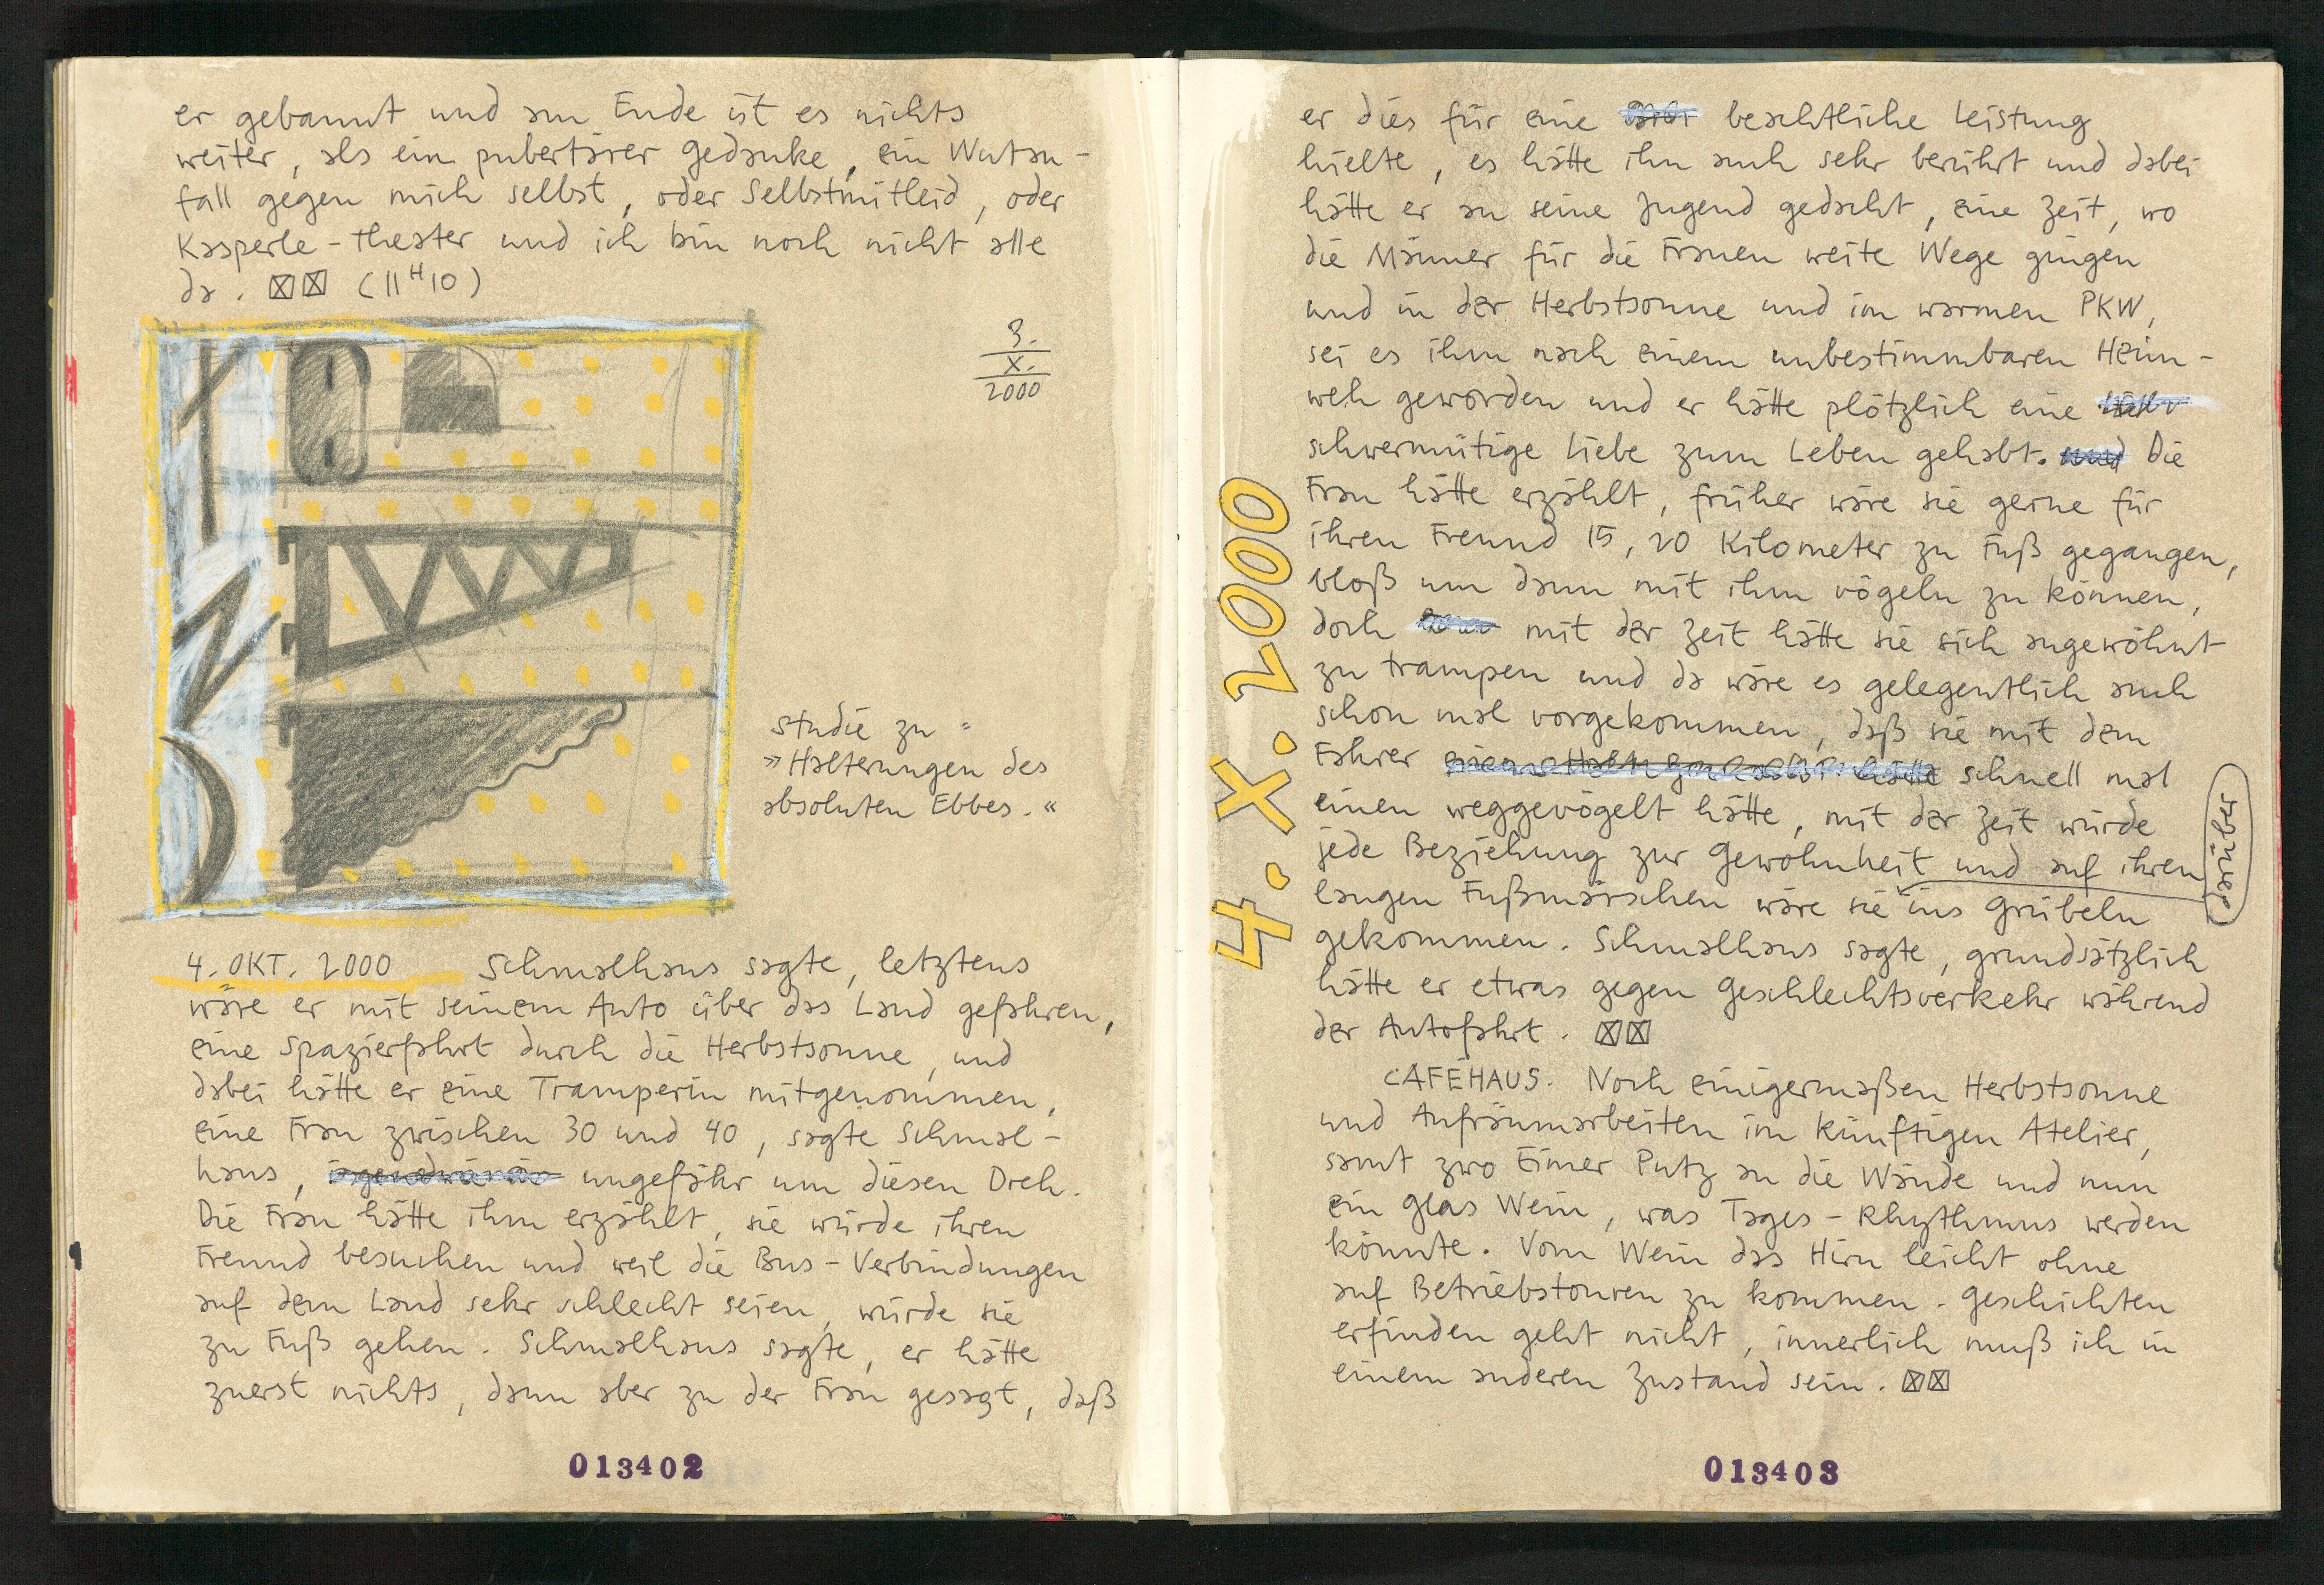 er gebannt und am Ende ist es nichts
weiter, als ein pubertärer Gedanke, ein Wutan-
fall gegen mich selbst, oder Selbstmitleid, oder
Kasperle-theater und ich bin noch nicht alle
da. ☒☒ (11ᴴ10)
3.
X.
2000
Studie zu
»Halterungen des
absoluten Ebbes.«
4. OKT. 2000 Schmalhans sagte, letztens
wäre er mit seinem Auto über das Land gefahren,
eine Spazierfahrt durch die Herbstsonne, und
dabei hätte er eine Tramperin mitgenommen,
eine Frau zwischen 30 und 40, sagte Schmal-
hans, ungefähr um diesen Dreh.
Die Frau hätte ihm erzählt, sie würde ihren
Freund besuchen und weil die Bus-Verbindungen
auf dem Land sehr schlecht seien, würde sie
zu Fuß gehen. Schmalhans sagte, er hätte
zuerst nichts, dann aber zu der Frau gesagt, daß
013402
4.X.2000
er dies für eine beachtliche Leistung
hielte, es hätte ihn auch sehr berührt und dabei
hätte er an seine Jugend gedacht, eine Zeit, wo
die Männer für die Frauen weite Wege gingen
und in der Herbstsonne und im warmen PKW,
sei es ihm nach einem unbestimmbaren Heim-
weh geworden und er hätte plötzlich eine
schwermütige Liebe zum Leben gehabt. und Die
Frau hätte erzählt, früher wäre sie gerne für
ihren Freund 15, 20 Kilometer zu Fuß gegangen,
bloß um dann mit ihm vögeln zu können,
doch mit der Zeit hätte sie sich angewöhnt
zu trampen und da wäre es gelegentlich auch
schon mal vorgekommen, daß sie mit dem
Fahrer schnell mal
einen weggevögelt hätte, mit der Zeit würde
jede Beziehung zur Gewohnheit und auf ihren
langen Fußmärschen wäre sie ins Grübeln
darüber
gekommen. Schmalhans sagte, grundsätzlich
hätte er etwas gegen Geschlechtsverkehr während
der Autofahrt. ☒☒
CAFÉHAUS. Noch einigermaßen Herbstsonne
und Aufräumarbeiten im künftigen Atelier,
samt zwo Eimer Putz an die Wände und nun
ein Glas Wein, was Tages-Rhythmus werden
könnte. Vom Wein das Hirn leicht ohne
auf Betriebstouren zu kommen. Geschichten
erfinden geht nicht, innerlich muß ich in
einem anderen Zustand sein. ☒☒
013403